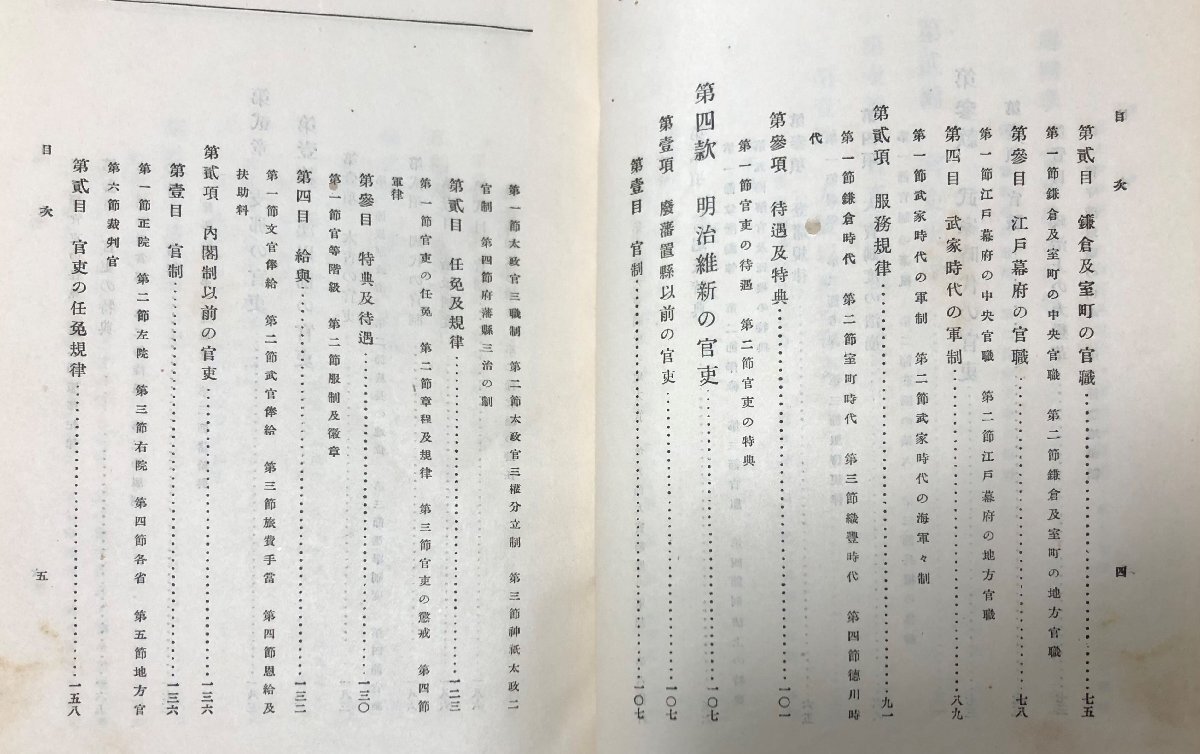 目次
四
第貳目 鎌倉及室町の官職………七五
第一節鎌倉及室町の中央官職 第二節鎌倉及室町の地方官職
第參目 江戸幕府の官職………七八
第一節江戸幕府の中央官職 第二節江戸幕府の地方官職
第四目 武家時代の軍制………八九
第一節武家時代の軍制 第二節武家時代の海軍々制
第貳項 服務規律………九一
第一節鎌倉時代 第二節室町時代 第三節織豐時代 第四節德川時
代
第參項 待遇及特典………一〇一
第一節官吏の待遇 第二節官吏の特典
第四款 明治維新の官吏………一〇七
第壹項 廢藩置縣以前の官吏………一〇七
第壹目 官制………一〇七
第一節太政官三職制 第二節太政官三權分立制 第三節神祇太政二
官制 第四節府藩縣三治の制
第貳目 任免及規律………一二三
第一節官吏の任免 第二節章程及規律 第三節官吏の懲戒 第四節
軍律
第參目 特典及待遇………一三〇
第一節官等階級 第二節服制及徽章
第四目 給與………一三二
第一節文官俸給 第二節武官俸給 第三節旅費手當 第四節恩給及
扶助料
第貳項 內閣制以前の官吏………一三六
第壹目 官制………一三六
第一節正院 第二節左院 第三節右院 第四節各省 第五節地方官
第六節裁判官
第貳目 官吏の任免規律………一五八
目次
五